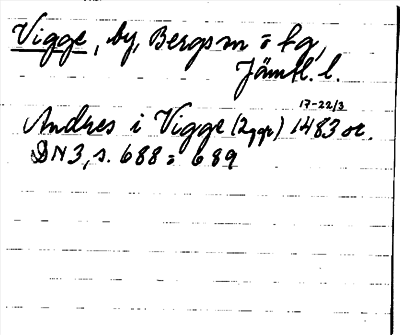 Vigge, by, Bergs sn o fg,
Jämtl. l.
17-22/3
Andres i Vigge (2ggr) 1483 or.
DN3, s. 688 o 689